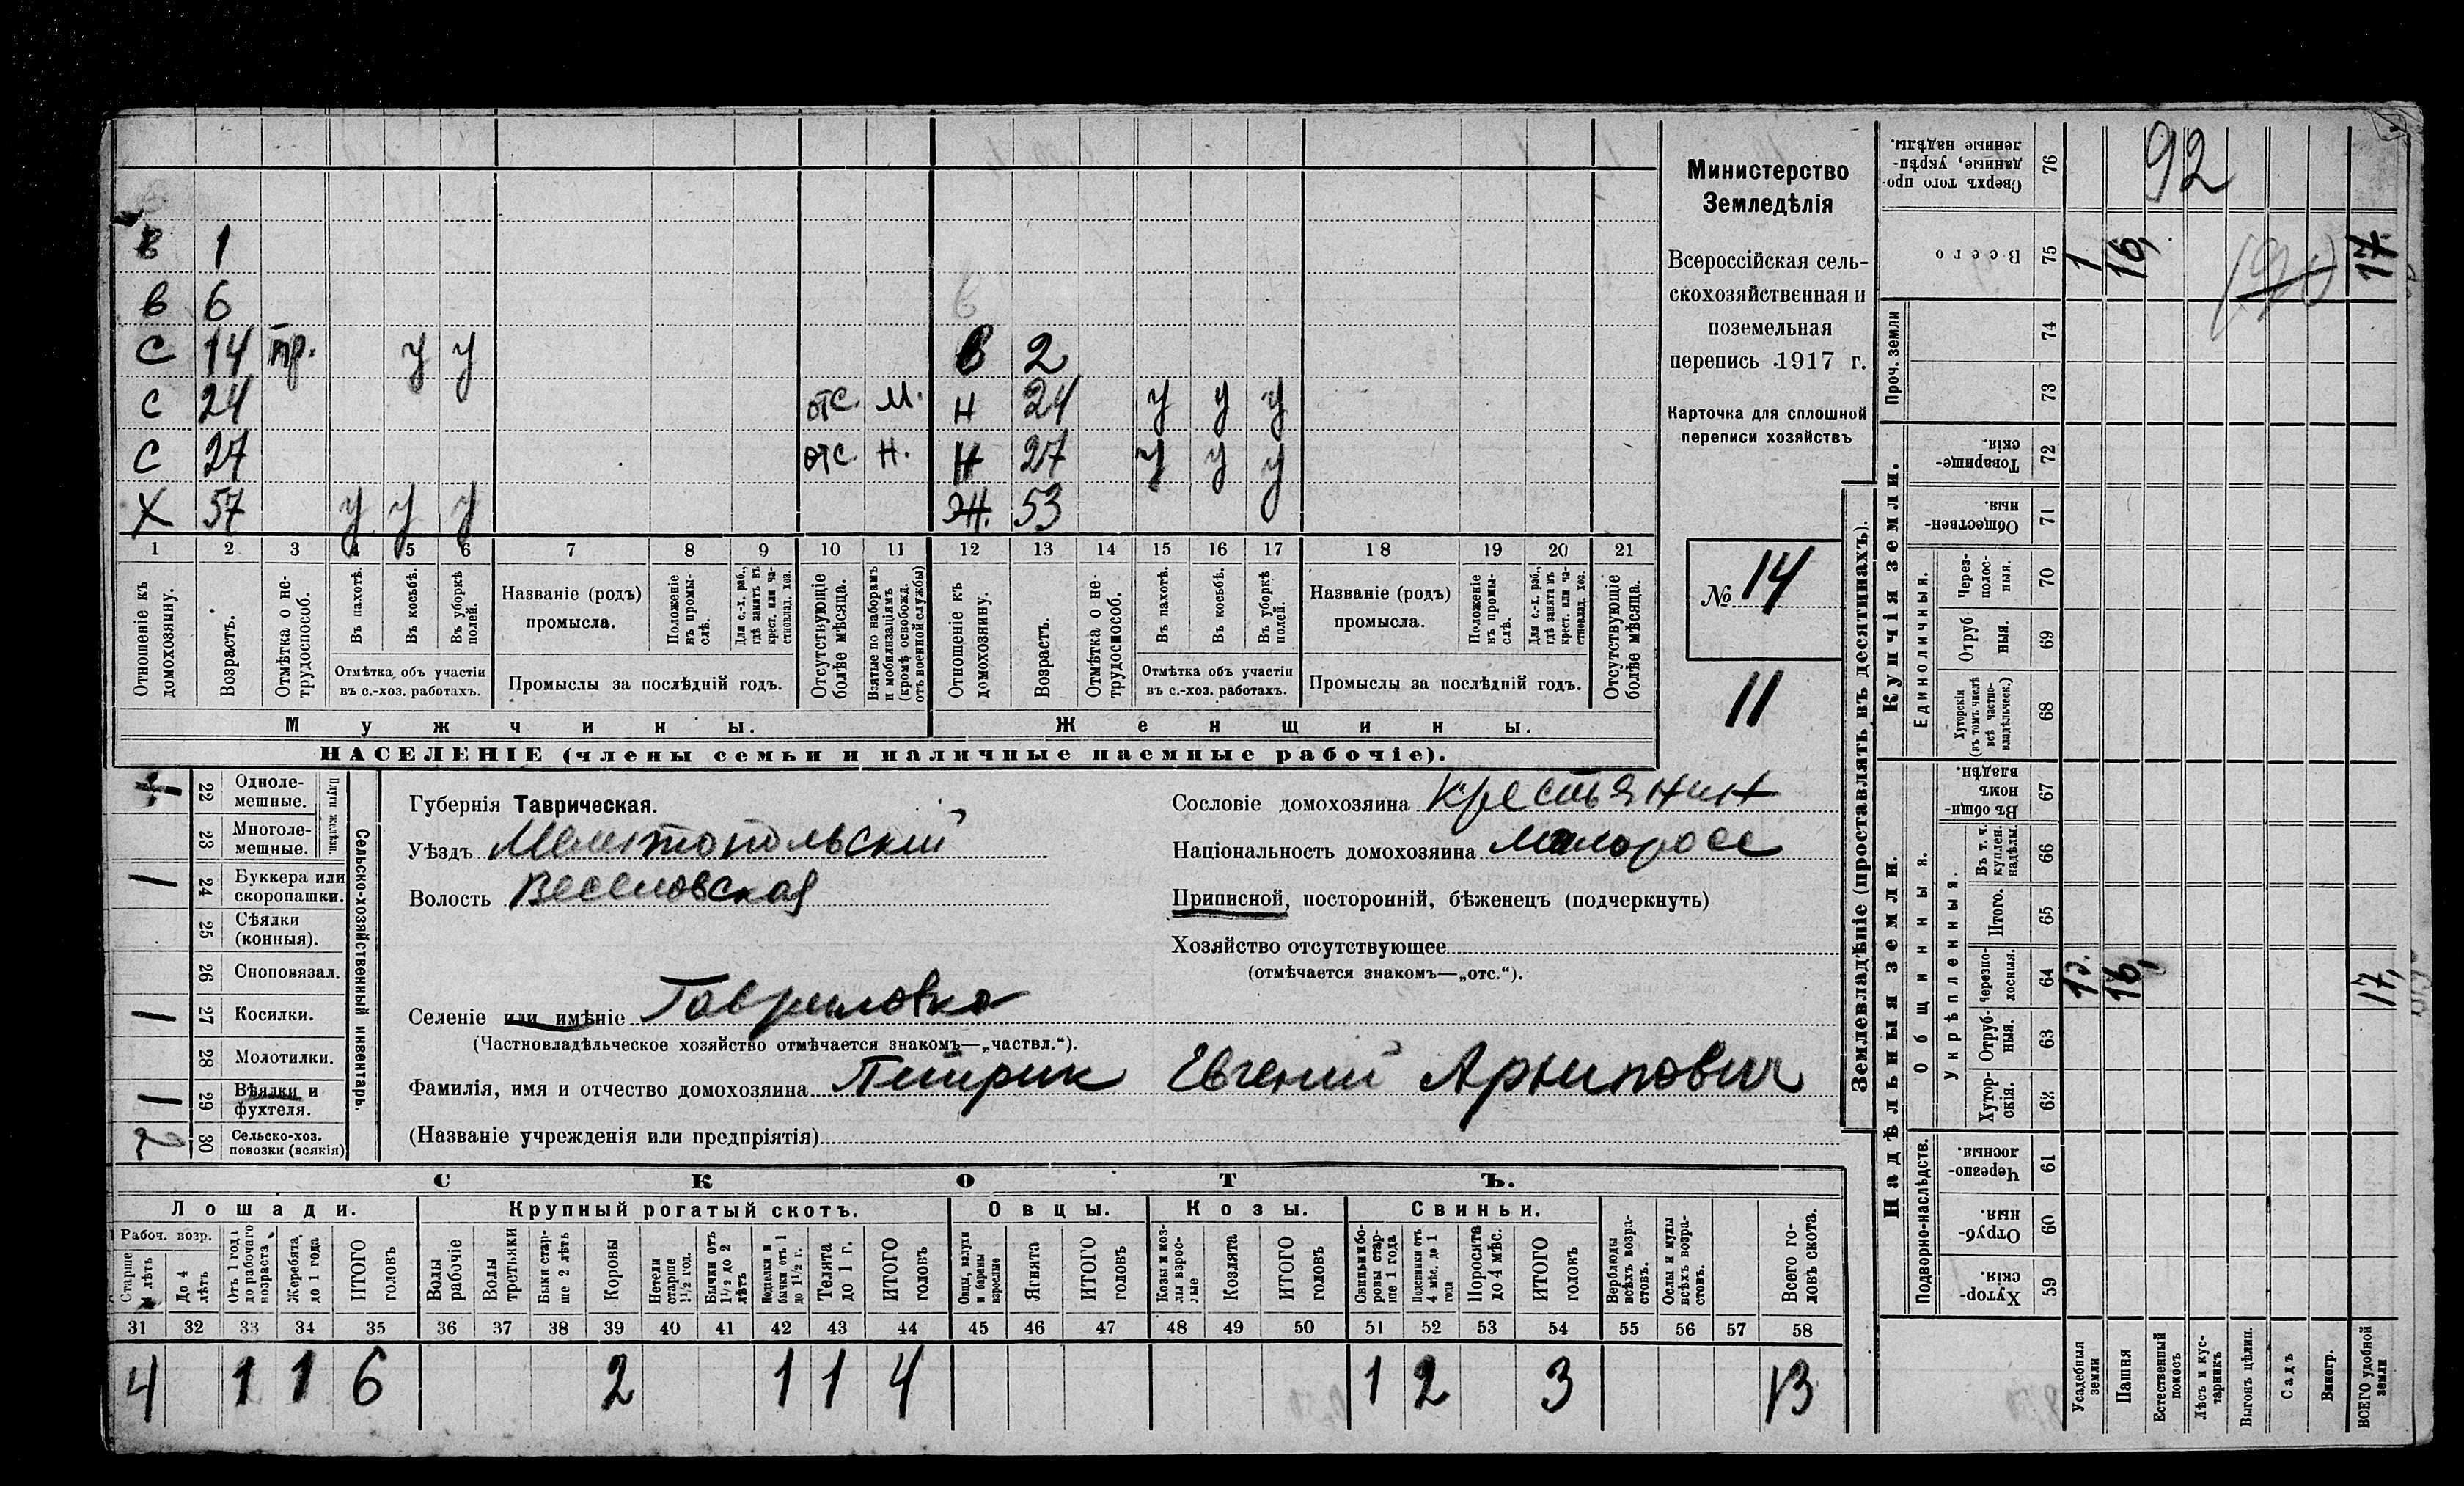 в 1
в 6
С 14 пр. у у в 2
С 24 отс. М. Н 24 у у у
С 27 отс Н. Н 27 у у у
Х 57 у у у Ж. 53
1 2 3 4 5 6 7 8 9 10 11 12 13 14 15 16 17 18 19 20 21
Отношеніе къ домохозяину.
Возрастъ.
Отмѣтка о не-трудоспособ.
Въ пахотѣ.
Въ косьбѣ.
Въ уборкѣ полей.
Отмѣтка объ участіи
въ с.-хоз. работахъ.
Названіе (родъ)
промысла.
Положеніе въ промы-слѣ.
Для с.-х. раб., гдѣ занятъ въ крест. или ча-стновлад. хоз.
Промыслы за послѣдній годъ.
Отсутствующіе болѣе мѣсяца.
Взятые по наборамъ и мобилизаціямъ (кромѣ освобожд. отъ военной службы)
Отношеніе къ домохозяину.
Возрастъ.
Отмѣтка о не-трудоспособ.
Въ пахотѣ.
Въ косьбѣ.
Въ уборкѣ полей.
Отмѣтка объ участіи
въ с.-хоз. работахъ.
Названіе (родъ)
промысла.
Положеніе въ промы-слѣ.
Для с.-х. раб., гдѣ занята въ крест. или ча-стновлад. хоз.
Промыслы за послѣдній годъ.
Отсутствующіе болѣе мѣсяца.
Мужчины.
Женщины.
НАСЕЛЕНІЕ (члены семьи и наличные наемные рабочіе).
Министерство
Земледѣлія
Всероссійская сель-
скохозяйственная и
поземельная
перепись 1917 г.
Карточка для сплошной
переписи хозяйствъ
№ 14
11
22 Одноле-
мешные.
23 Многоле-
мешные.
Плуги желѣзн.
24 Буккера или
скоропашки.
25 Сѣялки
(конныя).
26 Сноповязал.
27 Косилки.
28 Молотилки.
29 Вѣялки и
фухтеля.
30 Сельско-хоз.
повозки (всякія)
Сельско-хозяйственный инвентарь.
Губернія Таврическая.
Уѣздъ Мелитопольский
Волость Веселовская
Селеніе или имѣніе Гавриловка
(Частновладѣльческое хозяйство отмѣчается знакомъ—„частвл.“).
Фамилія, имя и отчество домохозяина Питрик Евгений Архипович
(Названіе учрежденія или предпріятія)
Сословіе домохозяина крестьянин
Національность домохозяина малоросс
Приписной, посторонній, бѣженецъ (подчеркнуть)
Хозяйство отсутствующее
(отмѣчается знакомъ—„отс.“).
СКОТЪ.
Лошади. Крупный рогатый скотъ. Овцы. Козы. Свиньи.
Рабоч. возр.
Старше 4 лѣтъ
До 4 лѣтъ
Отъ 1 года до рабочаго возраста
Жеребята до 1 года
ИТОГО головъ
Волы рабочіе
Волы третьяки
Быки стар-ше 2 лѣтъ
Коровы
Нетели старше 1½ год.
Бычки отъ 1½ до 2 лѣтъ
Подтелки и бычки отъ 1 до 1½ г.
Телята до 1 г.
ИТОГО головъ
Овцы, валухи и бараны взрослые
Ягнята
ИТОГО головъ
Козы и коз-лы взрос-лые
Козлята
ИТОГО головъ
Свиньи и бо-ровы стар-ше 1 года
Подсвинки отъ 4 мѣс. до 1 года
Поросята до 4 мѣс.
ИТОГО головъ
Верблюды всѣхъ возра-стовъ.
Ослы и мулы всѣхъ возра-стовъ.
Всего го-ловъ скота.
31 32 33 34 35 36 37 38 39 40 41 42 43 44 45 46 47 48 49 50 51 52 53 54 55 56 57 58
4 1 1 6 2 1 1 4 1 2 3 13
Землевладѣніе (проставлять въ десятинахъ).
Купчія земли.
Надѣльныя земли.
Сверхъ того про-данные, укрѣп-ленные надѣлы. 76
92
Всего 75 1 16, 17.
Проч. земли 74
73
Товарище-скія. 72
Обществен-ныя 71
Единоличныя.
Через-полос-ныя. 70
Отруб ныя. 69
Хуторскія (въ томъ числѣ всѣ частно-владѣльческ.) 68
Общинныя.
Въ общи-номъ владѣн. 67
Укрѣпленныя.
Въ т. ч. куплен. надѣлы. 66
Итого. 65
Черезпо-лосныя. 64 1. 16, 17,
Отруб-ныя. 63
Хутор-скія. 62
Подворно-наслѣдств.
Черезпо-лосныя. 61
Отруб-ныя. 60
Хутор-скія. 59
Усадебныя земли
Пашня
Естественный покосъ
Лѣсъ и кус-тарникъ
Выгонъ цѣлин.
Садъ
Виногр.
ВСЕГО удобной земли